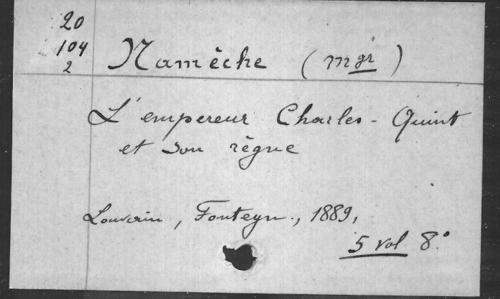 20
104
2
Namêche (Mgr)
L'empereur Charles-Quint
et son règne
Louvain, Fonteyn., 1889,
5 vol 8°